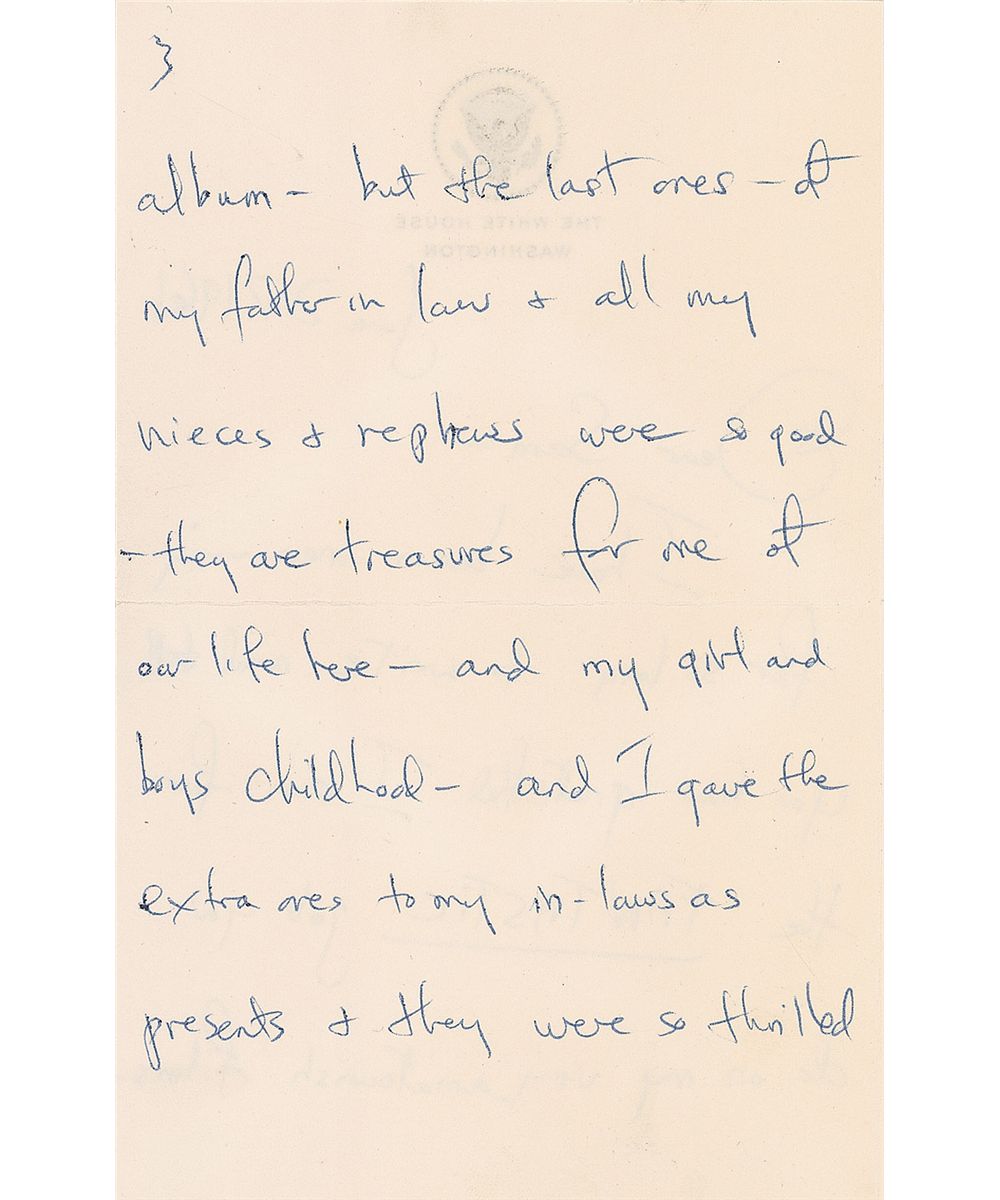 3
THE WHITE HOUSE
WASHINGTON
album – but the last ones – of
my father in law + all my
nieces + nephews were so good
– they are treasures for me of
our life here – and my girl and
boys childhood – and I gave the
extra ones to my in-laws as
presents + they were so thrilled